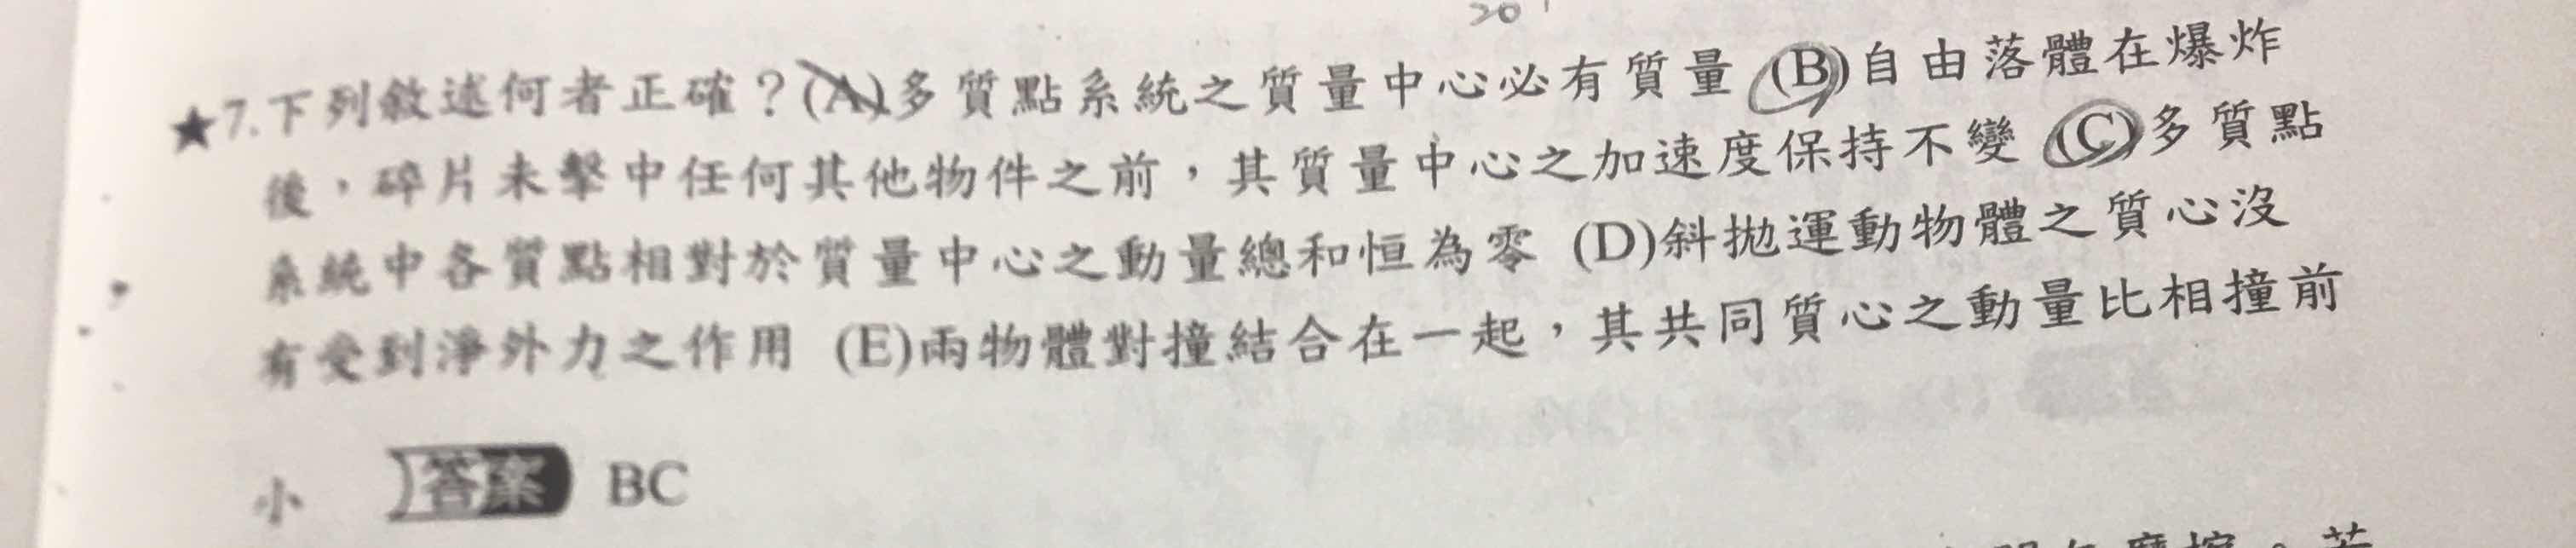 20
★7.下列敘述何者正確？(A)多質點系統之質量中心必有質量 (B)自由落體在爆炸
後，碎片未擊中任何其他物件之前，其質量中心之加速度保持不變 (C)多質點
系統中各質點相對於質量中心之動量總和恒為零 (D)斜拋運動物體之質心沒
有受到淨外力之作用 (E)兩物體對撞結合在一起，其共同質心之動量比相撞前
小
答案 BC